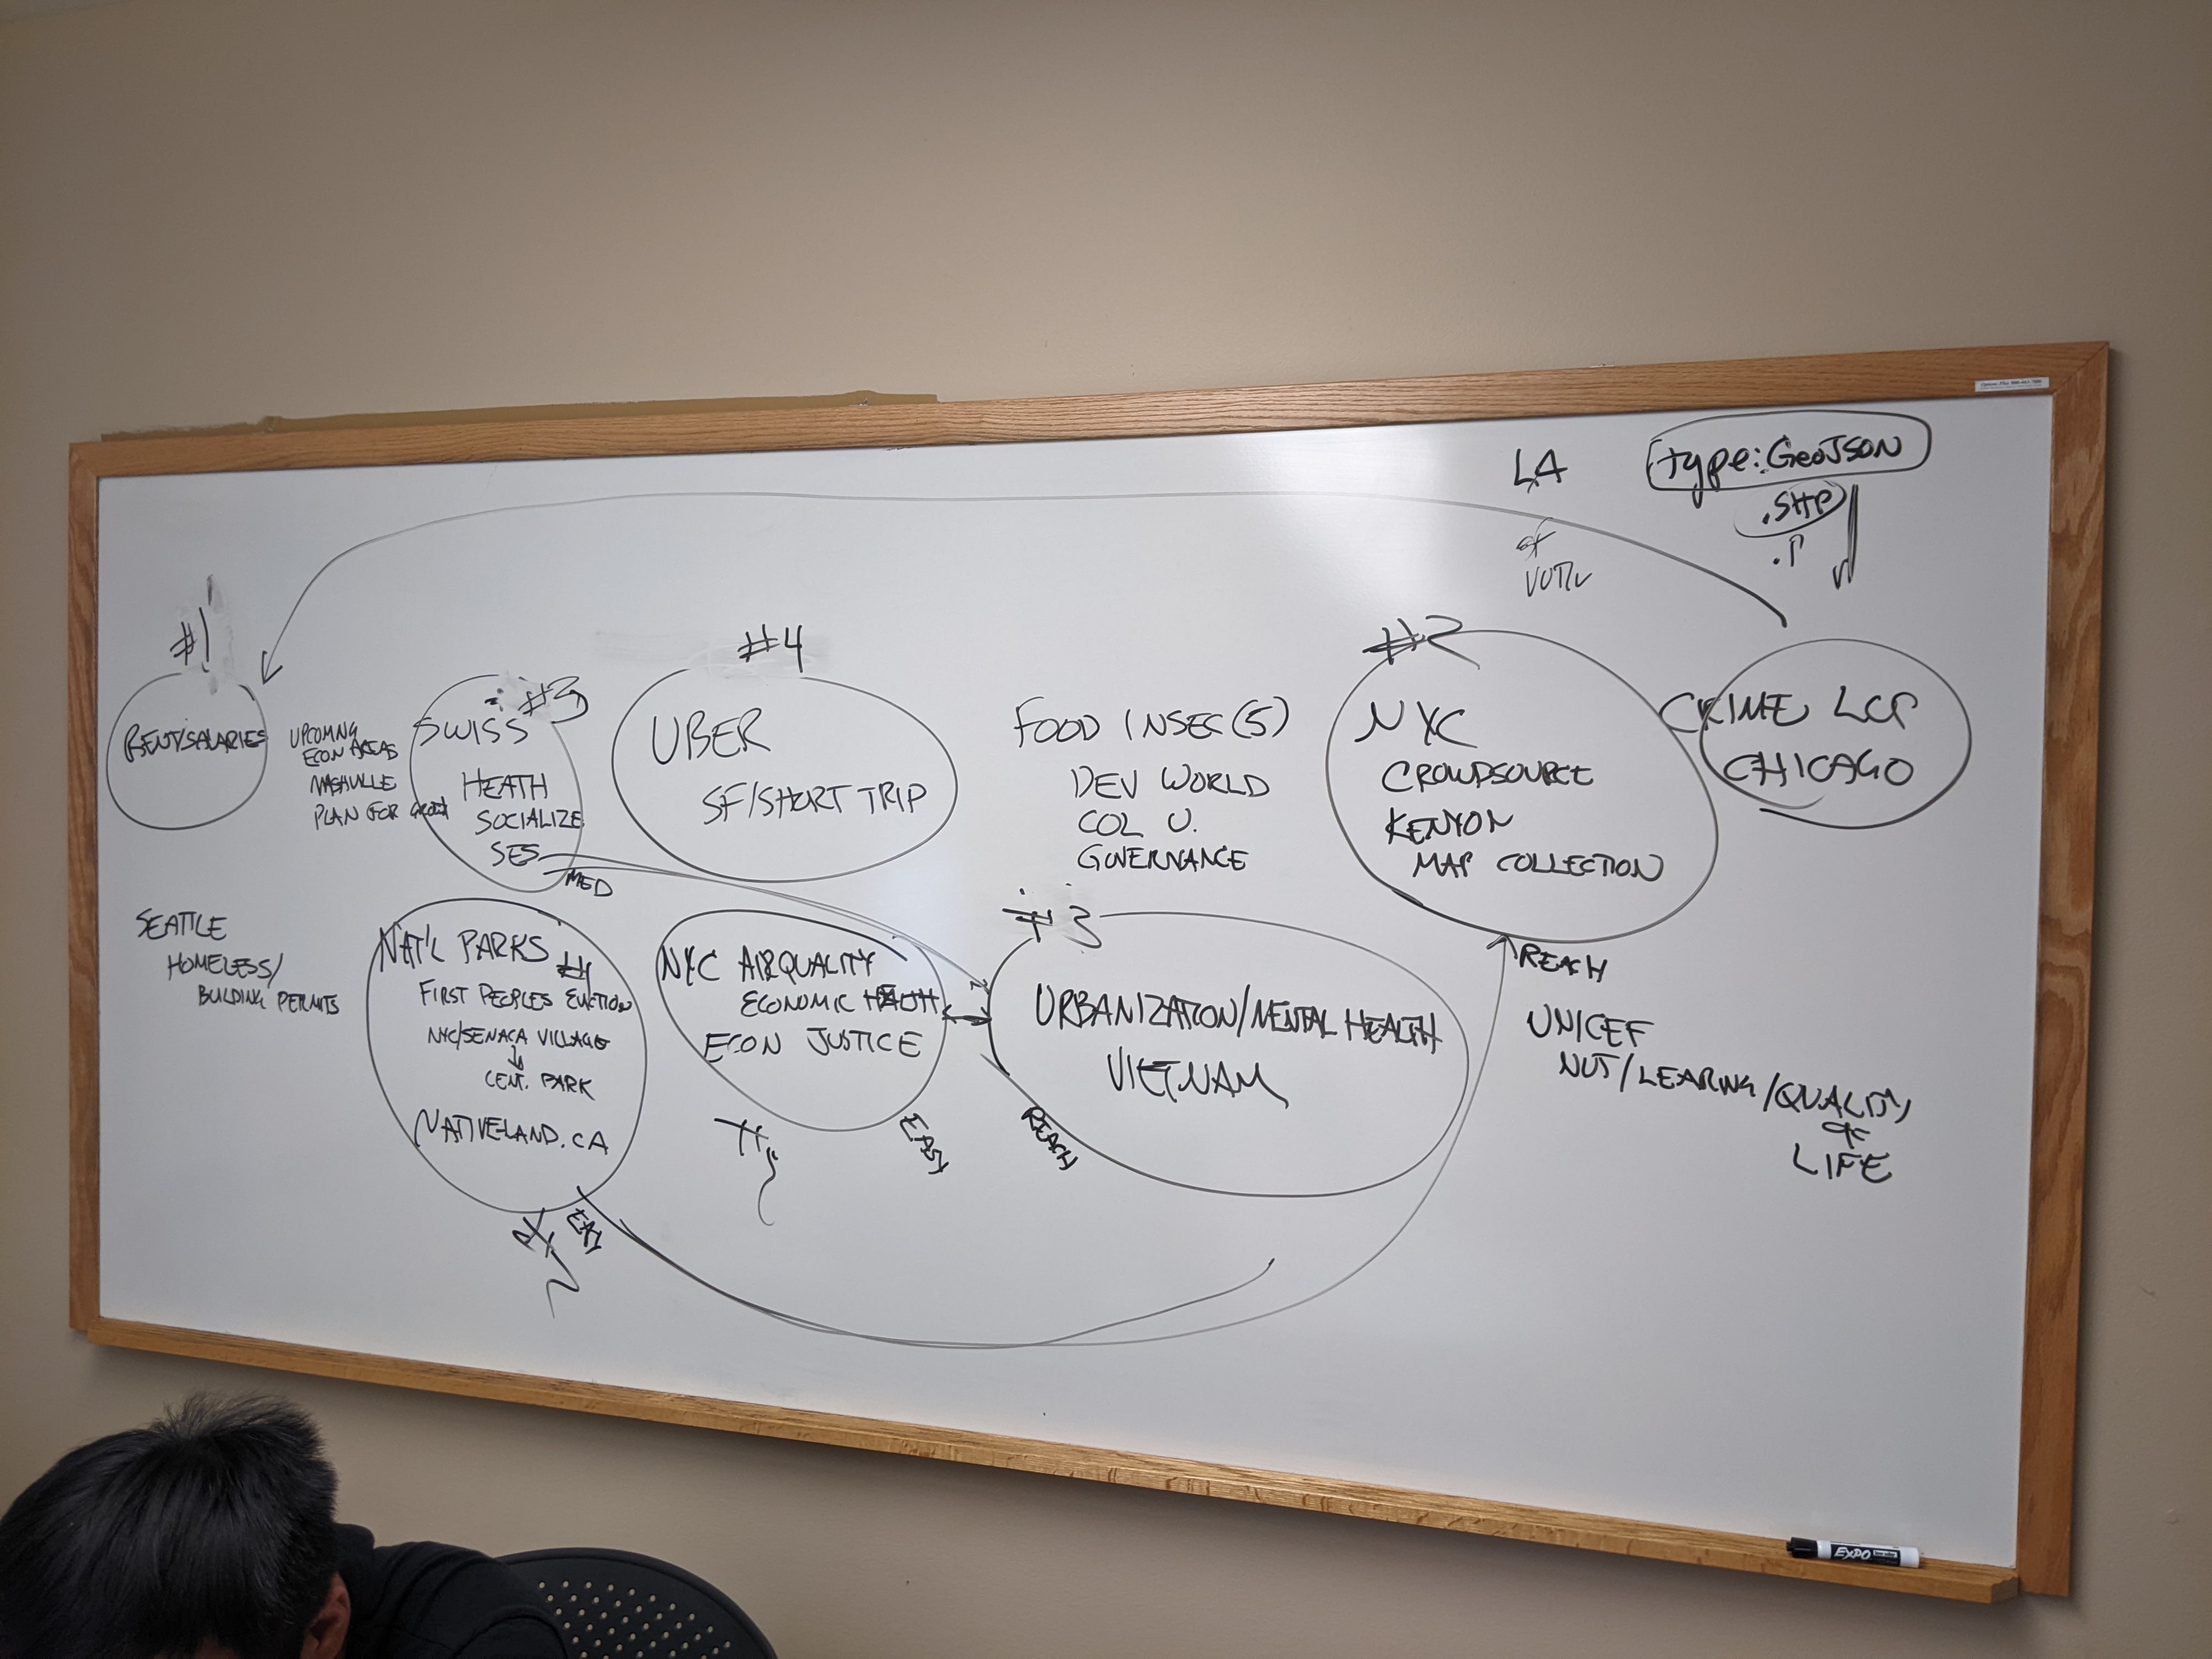 LA
type: GeoJSON
.SHP
.P
of
#1
RENT/SALARIES
UPCOMING
ECON AREAS
NASHVILLE
PLAN FOR
#3
SWISS
HEATH
SOCIALIZE
SES
MED
#4
UBER
SF/SHORT TRIP
FOOD INSEC (5)
DEV WORLD
COL U.
GOVERNANCE
#2
NYC
CROWDSOURCE
KENYON
MAP COLLECTION
REACH
CRIME LCP
CHICAGO
SEATTLE
HOMELESS/
BULDING PERMITS
NAT'L PARKS
#1
FIRST PEOPLES EVICTION
NYC/SENACA VILLAGE
CENT. PARK
NATIVE-LAND.CA
EASY
NYC AIRQUALITY
ECONOMIC HEALTH
ECON JUSTICE
EASY
#3
URBANIZATION/MENTAL HEALTH
VIETNAM
REACH
UNICEF
NUT/LEARING/QUALITY
OF
LIFE
EXPO